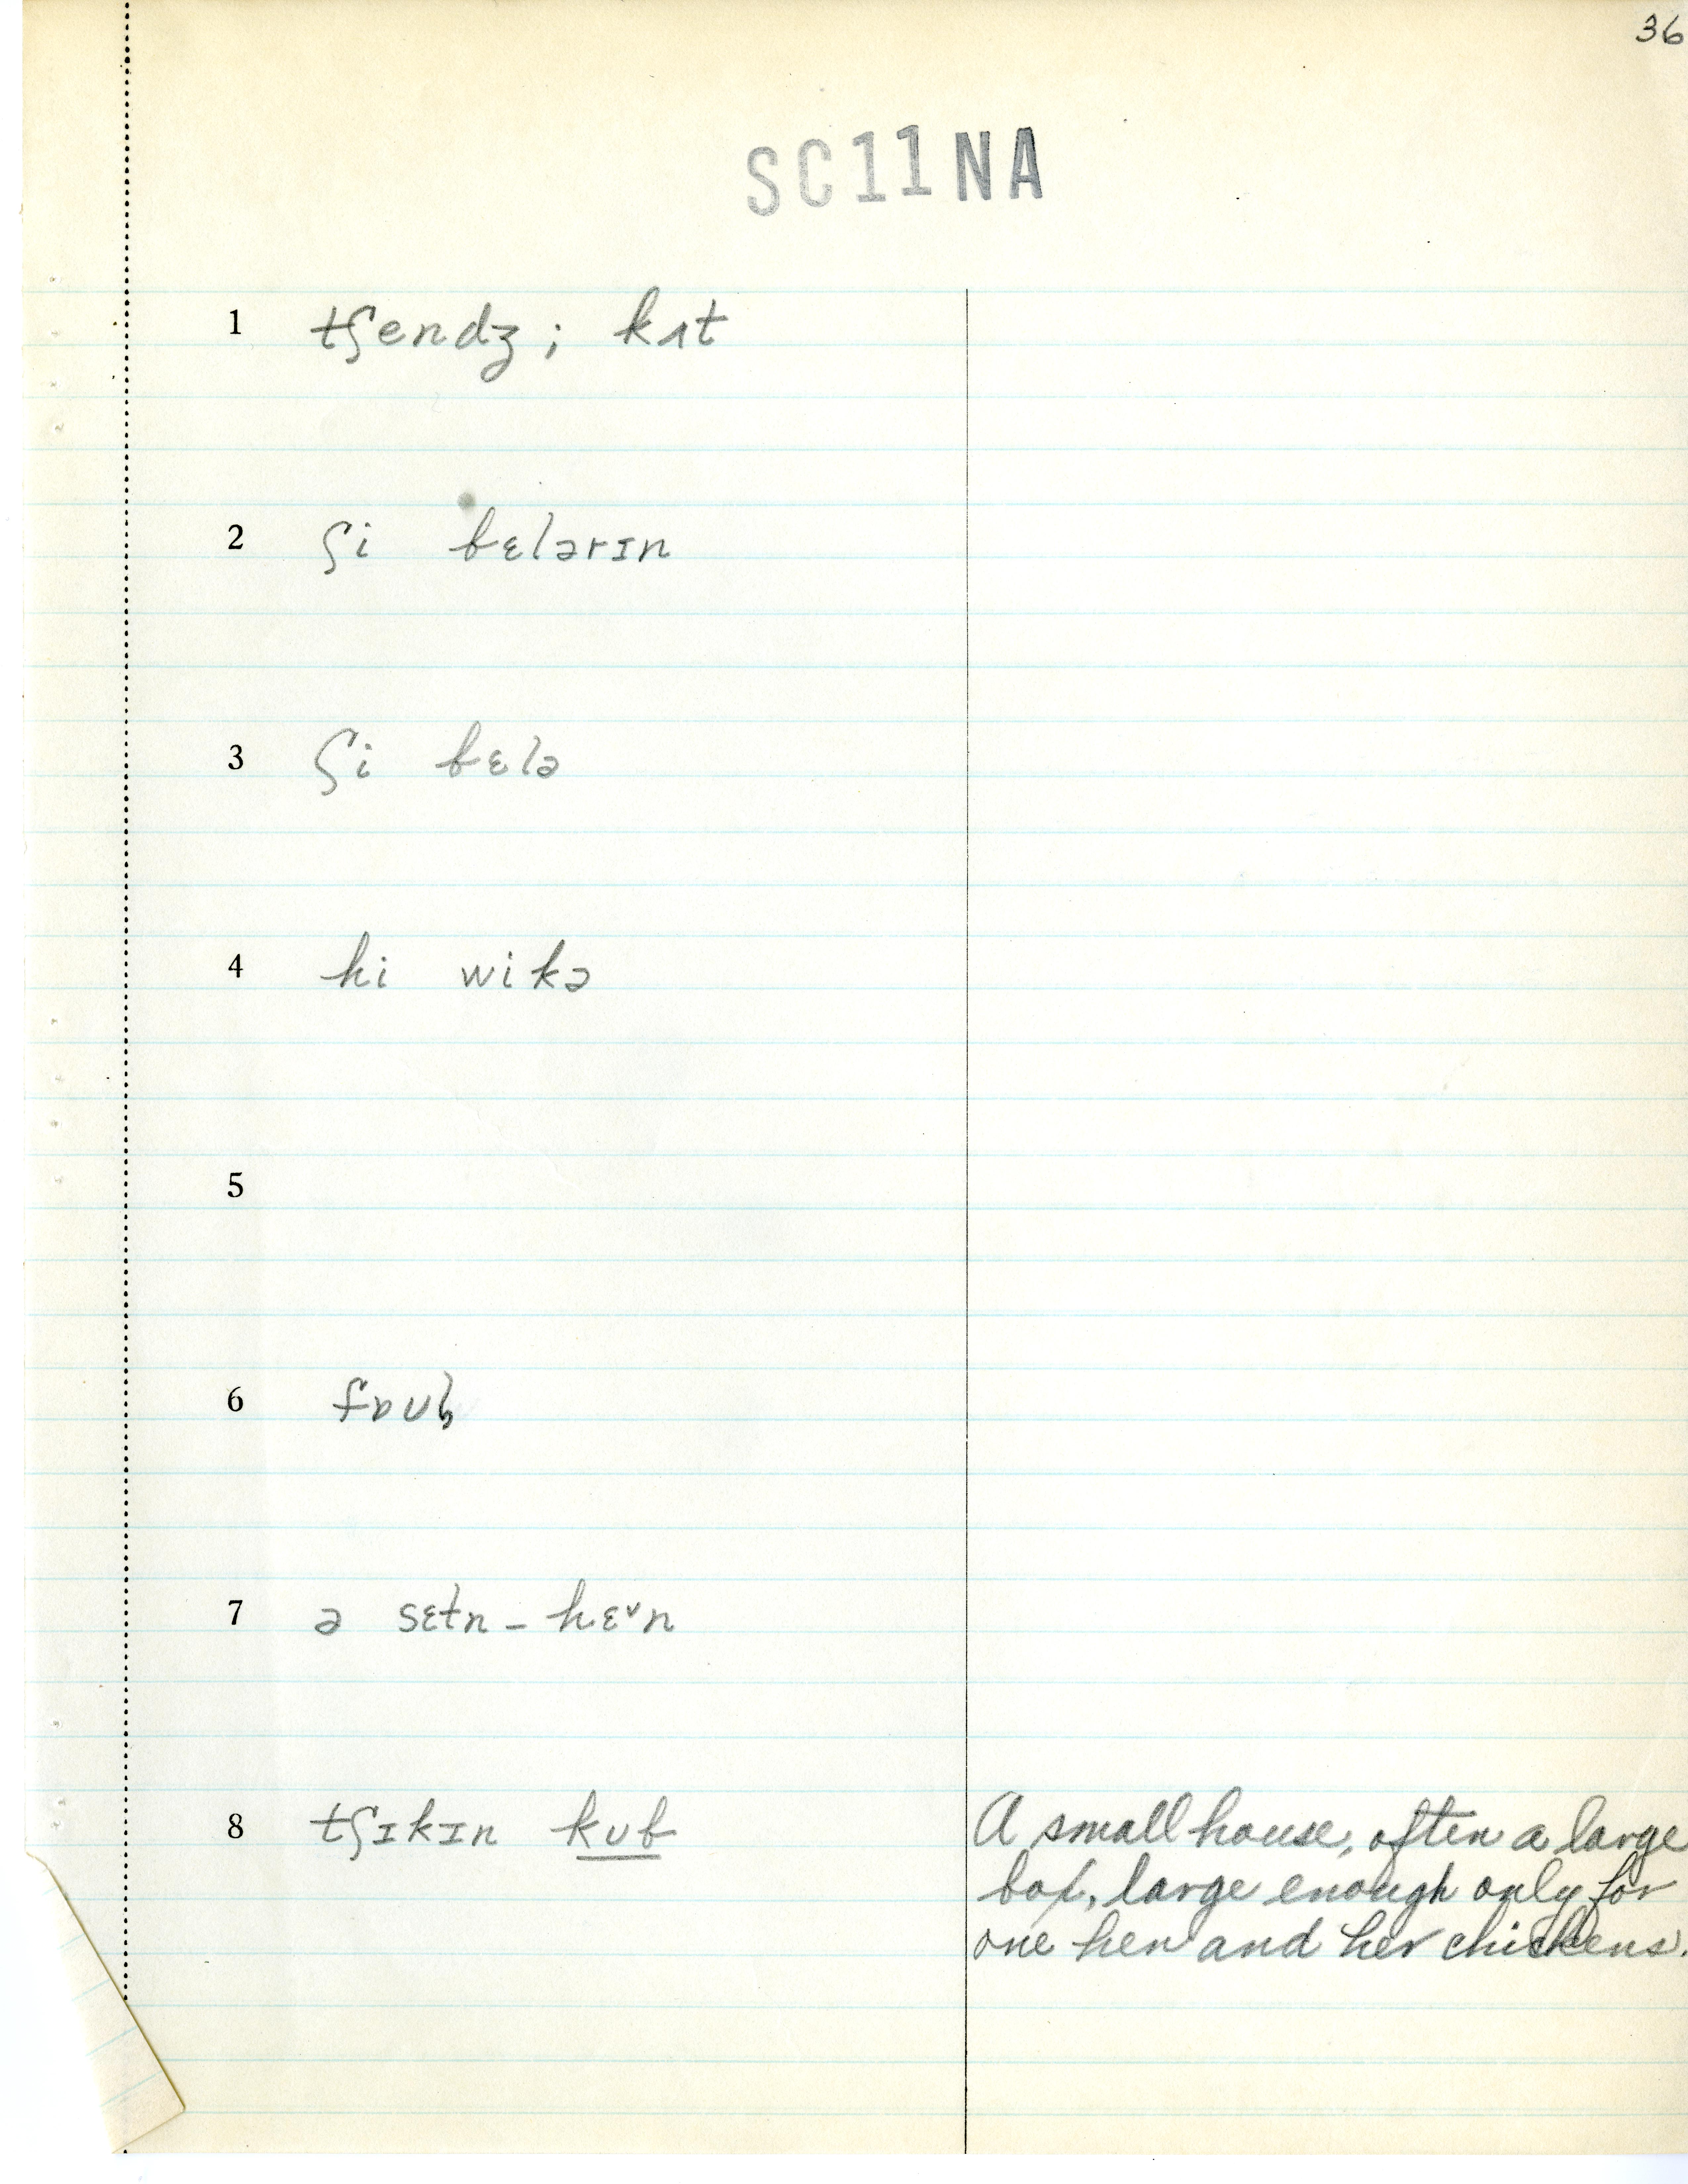 36
SC11NA
1 tʃendʒ; kʌt
2 ʃi bɛlərɪn
3 ʃi bɛlə
4 hi wikə
5
6 fɒʊl
7 ə sɛtn - hɛᵛn
8 tʃɪkɪn kʊb
A small house, often a large
box, large enough only for
one hen and her chickens.